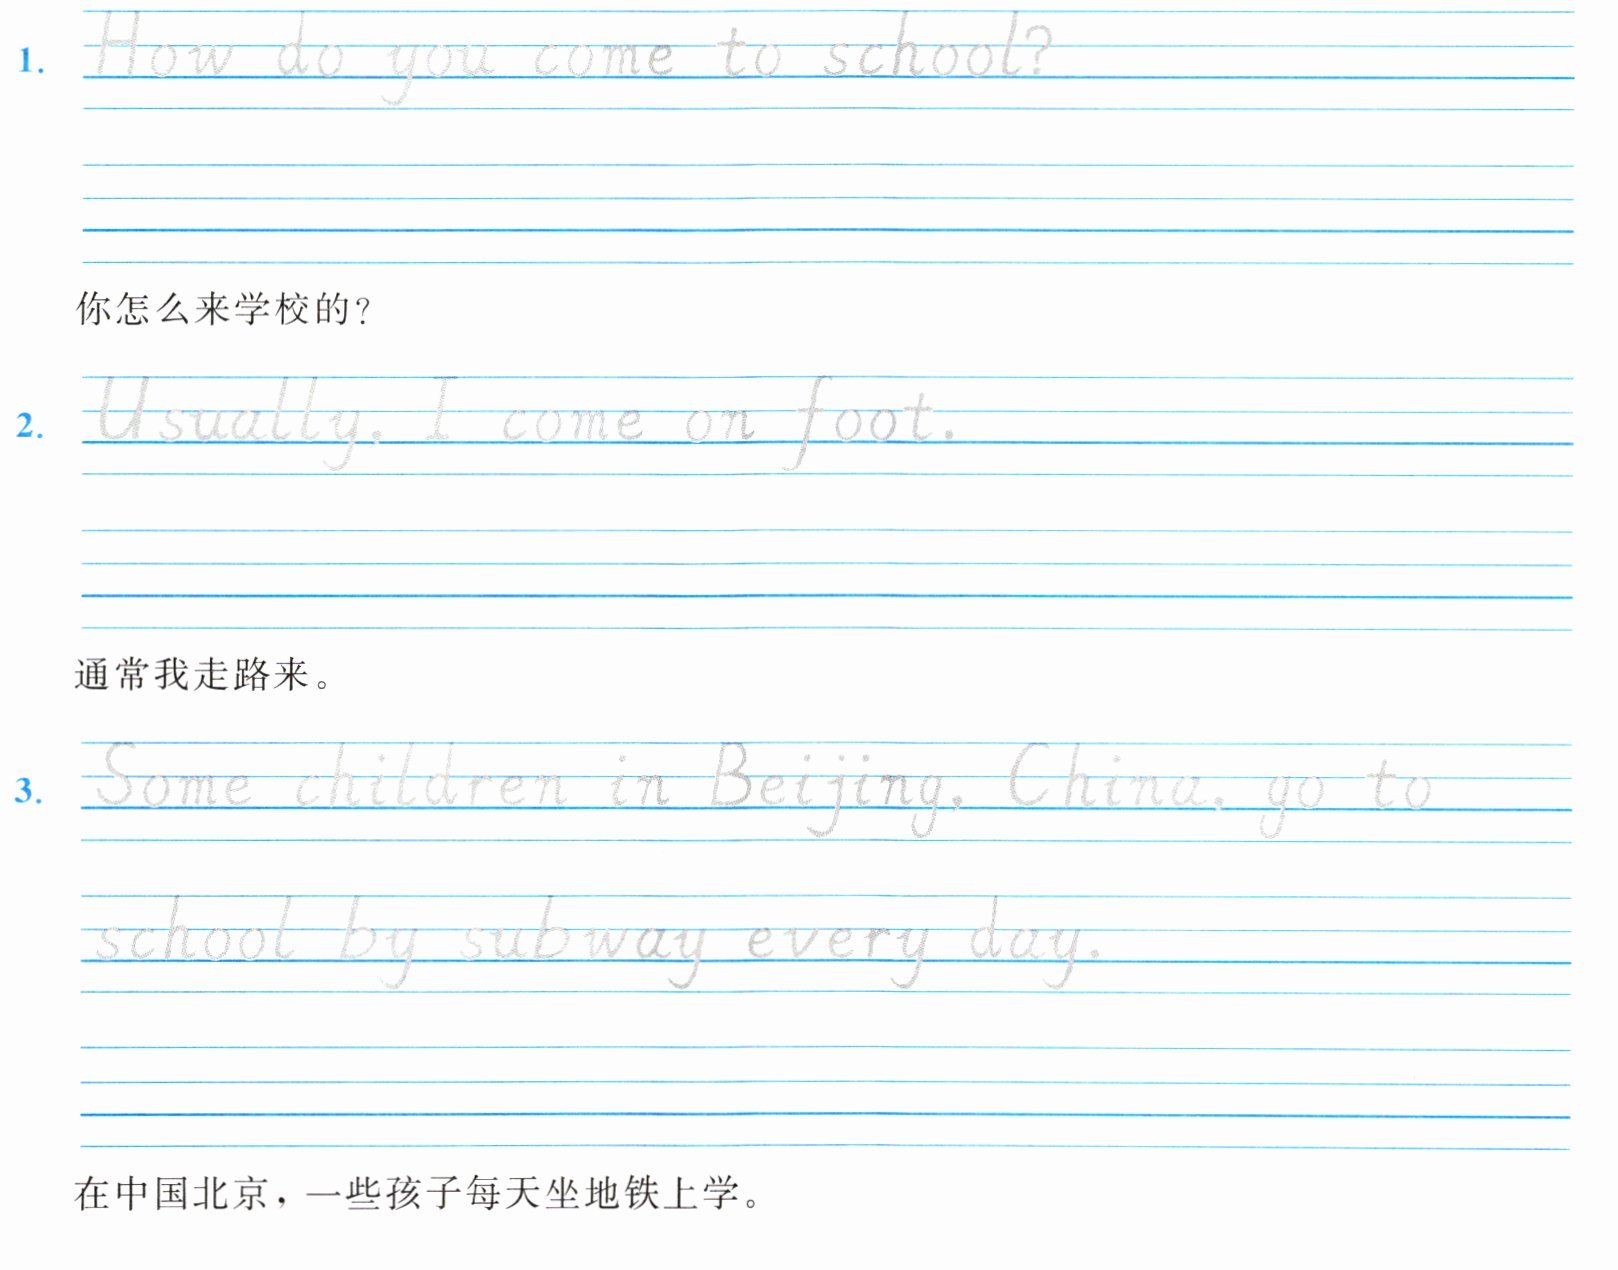 1. How do you come to school?
你怎么来学校的?
2. Usually, I come on foot.
通常我走路来。
3. Some children in Beijing, China, go to
school by subway every day.
在中国北京，一些孩子每天坐地铁上学。